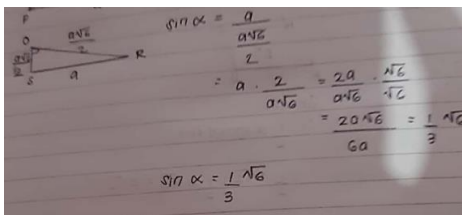 P
O
a√6/2
R
S
a
sin α = a / (a√6/2)
= a · 2/(a√6) = 2a/(a√6) · √6/√6
= 2a√6/6a = 1/3 √6
sin α = 1/3 √6